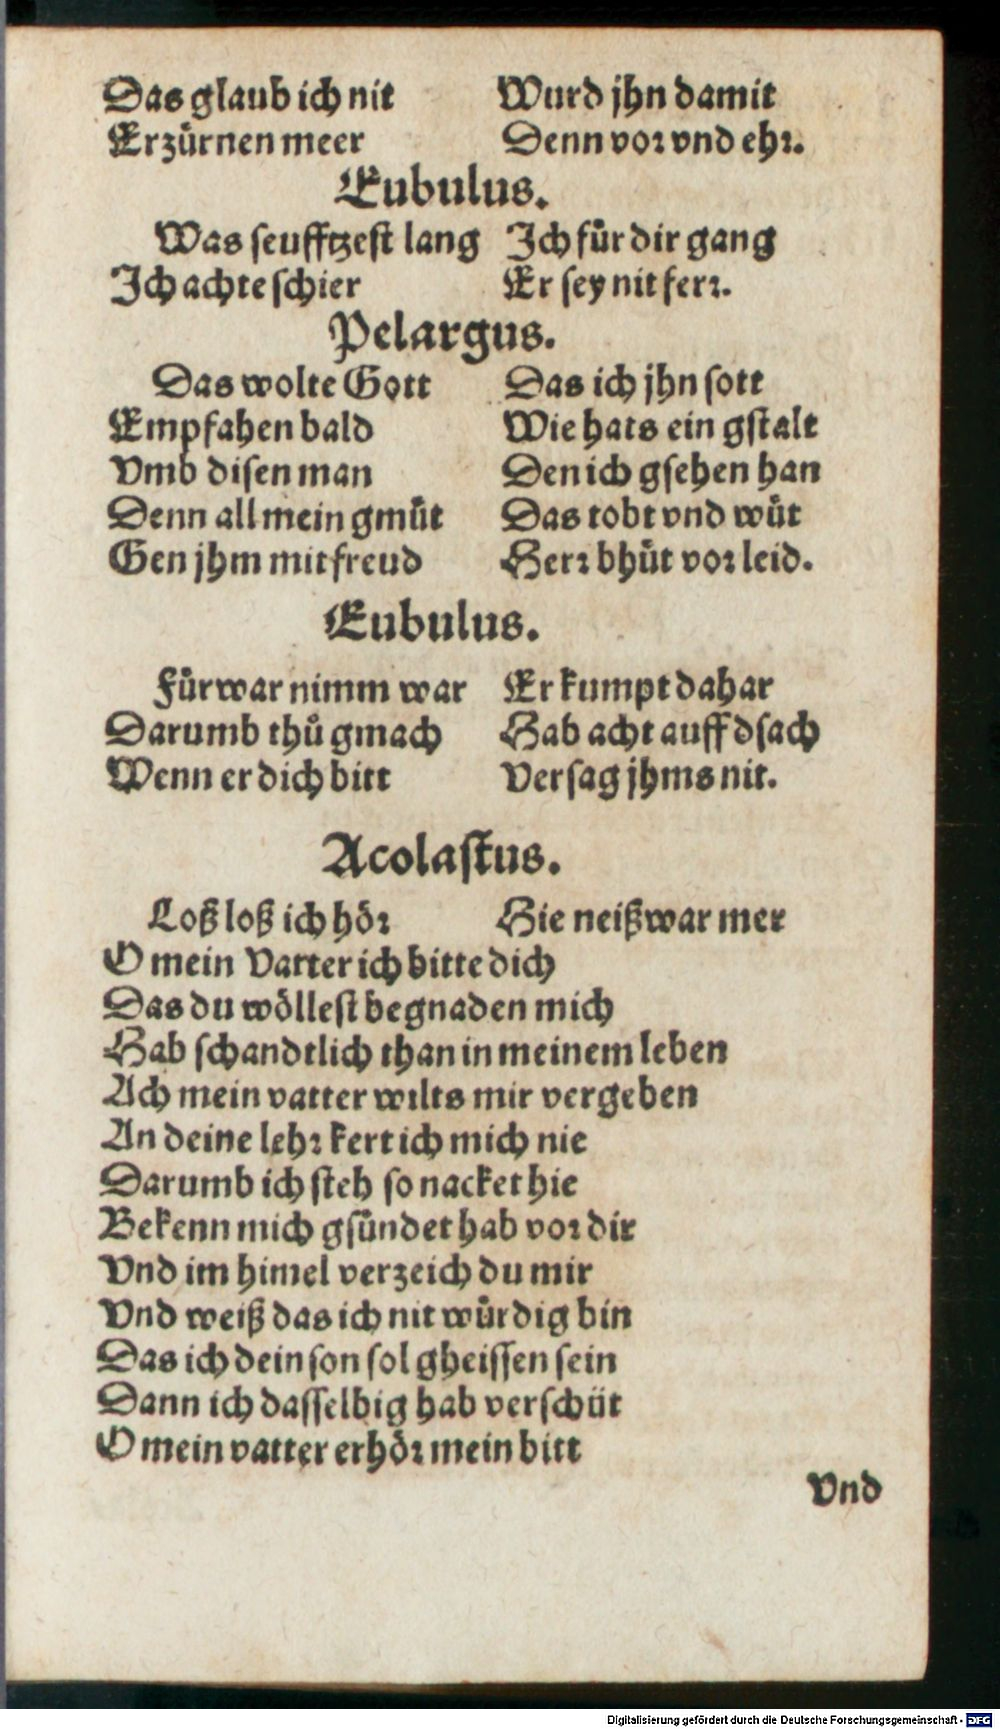 Das glaub ich nit Wurd jhn damit
Erzürnen meer Denn vor vnd ehr.
Eubulus.
Was seufftzest lang Ich für dir gang
Ich achte schier Er sey nit ferr.
Pelargus.
Das wolte Gott Das ich jhn sott
Empfahen bald Wie hats ein gstalt
Vmb disen man Den ich gsehen han
Denn all mein gmüt Das tobt vnd wüt
Gen jhm mit freud Herr bhüt vor leid.
Eubulus.
Fürwar nimm war Er kumpt dahar
Darumb thů gmach Hab acht auff dsach
Wenn er dich bitt Versag jhms nit.
Acolastus.
Loß loß ich hör Hie neißwar mer
O mein Vatter ich bitte dich
Das du wöllest begnaden mich
Hab schandtlich than in meinem leben
Ach mein vatter wilts mir vergeben
An deine lehr kert ich mich nie
Darumb ich steh so nacket hie
Bekenn mich gsündet hab vor dir
Vnd im himel verzeich du mir
Vnd weiß das ich nit würdig bin
Das ich dein son sol gheissen sein
Dann ich dasselbig hab verschüt
O mein vatter erhör mein bitt
Vnd
Digitalisierung gefördert durch die Deutsche Forschungsgemeinschaft - DFG